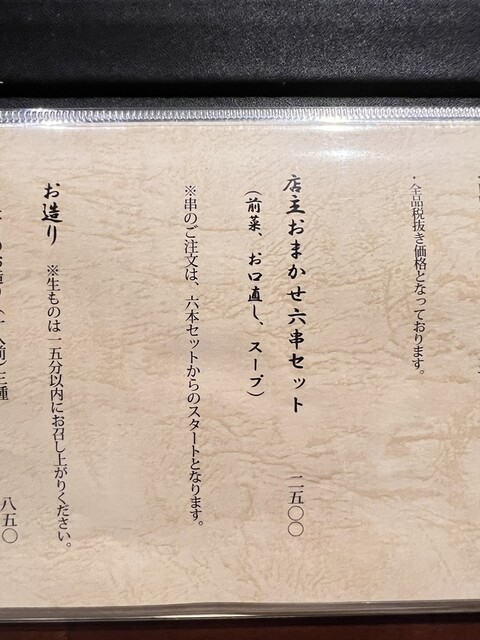 ・全品税抜き価格となっております。
店主おまかせ六串セット 二五〇〇
(前菜、お口直し、スープ)
※串のご注文は、六本セットからのスタートとなります。
お造り ※生ものは一五分以内にお召し上がりください。
三種 八五〇